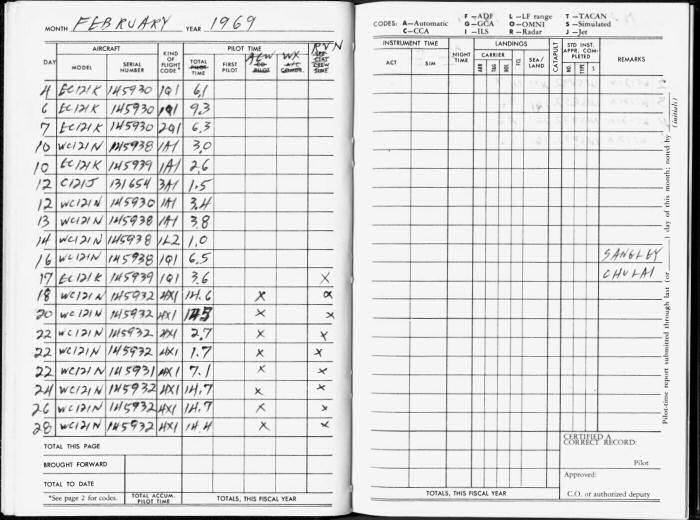 MONTH FEBRUARY YEAR 1969
AIRCRAFT
PILOT TIME
RVN
DAY
MODEL
SERIAL NUMBER
KIND OF FLIGHT CODE*
TOTAL PILOT TIME
FIRST PILOT
ACW
CO PILOT
WX
A/C COMDR.
TIME
4 EC121K 145930 1Q1 6.1
6 EC121K 145930 1Q1 9.3
7 EC121K 145930 2Q1 6.3
10 WC121N 145938 1A1 3.0
10 EC121K 145939 1A1 2.6
12 C121J 131654 3A1 1.5
12 WC121N 145930 1A1 3.4
13 WC121N 145938 1A1 3.8
14 WC121N 145938 1L2 1.0
16 WC121N 145938 1Q1 6.5
17 EC121K 145939 1Q1 3.6 X
18 WC121N 145932 4X1 14.6 X X
20 WC121N 145932 4X1 14.5 X X
22 WC121N 145932 4X1 2.7 X X
22 WC121N 145932 4X1 1.7 X X
22 WC121N 145931 4X1 7.1 X X
24 WC121N 145932 4X1 14.7 X X
26 WC121N 145932 4X1 14.7 X X
28 WC121N 145932 4X1 14.4 X X
TOTAL THIS PAGE
BROUGHT FORWARD
TOTAL TO DATE
*See page 2 for codes.
TOTAL ACCUM. PILOT TIME
TOTALS, THIS FISCAL YEAR
CODES: A—Automatic F—ADF L—LF range T—TACAN
C—CCA G—GCA O—OMNI S—Simulated
I—ILS R—Radar J—Jet
INSTRUMENT TIME
LANDINGS
CATAPULT
STD INST. APPR. COMPLETED
REMARKS
ACT
SIM
NIGHT TIME
CARRIER
ARR
T&G
BOL
SEA/LAND
NO.
TYPE
S
SANGLEY
CHULAI
TOTALS, THIS FISCAL YEAR
CERTIFIED A CORRECT RECORD:
Pilot
Approved:
C.O. or authorized deputy
Pilot-time report submitted through last (or ) day of this month; noted by (initials)